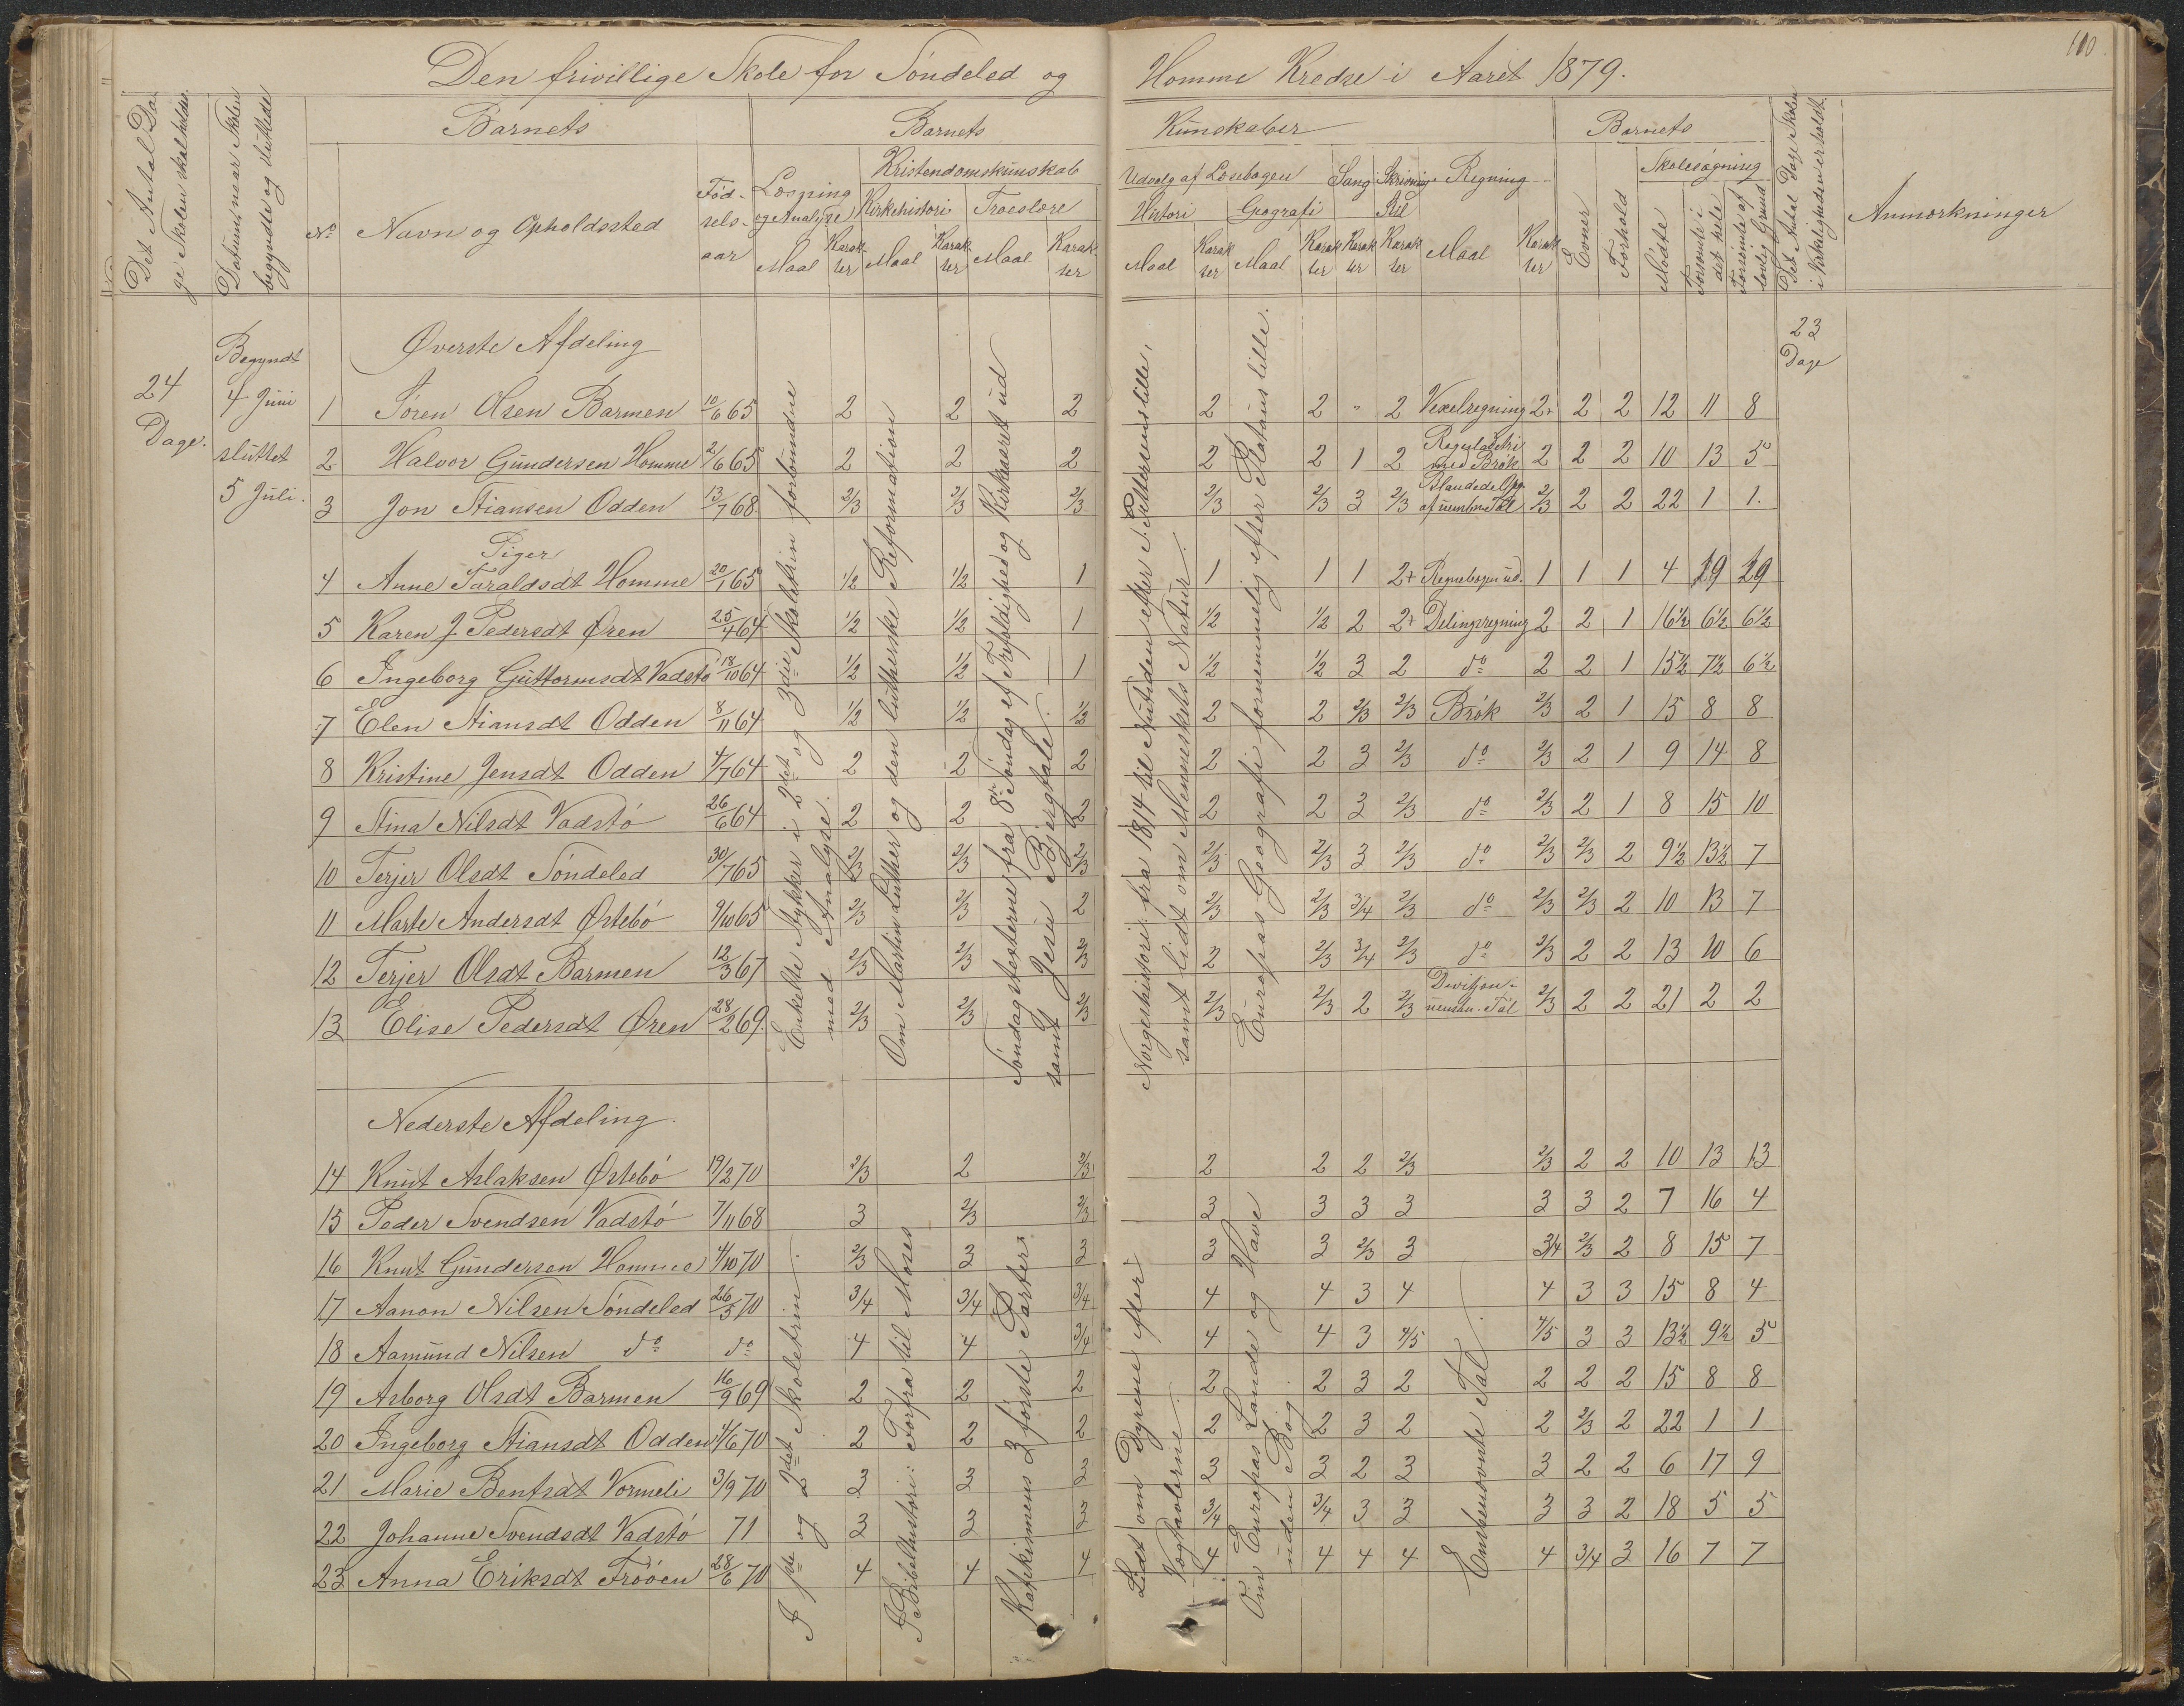 110.
Den frivillige Skole for Söndeled og Homme Kredse i Aaret 1879.
Det Antal Da-
ge Skolen skal holdes.
Datum, naar Skolen
begyndte og sluttede
Barnets
Barnets
Kundskaber
Barnets
Det Antal Dage Skolen
i Virkeligheden er holdt.
Anmærkninger
No
Navn og Opholdssted
Fød-
sels-
aar
Læsning
og Analyse
Kristendomskundskab
Kirkehistori
Troeslære
Udvalg af Læsebogen
Histori
Geografi
Sang
Skrivning
Stil
Regning
Evner
Forhold
Skolesøgning
Mødte
Forsømte i
det hele
Forsømte af
lovlig Grund
Maal Karak-ter Maal Karak-ter Maal Karak-ter Maal Karak-ter Maal Karak-ter Karak-ter Karak-ter Maal Karak-ter
24
Dage.
Begyndt
4 Juni
sluttet
5 Juli.
23
Dage
Øverste Afdeling
1 Sören Olsen Barmen 10/6 65 2 2 2 2 2 " 2 Vexelregning 2+ 2 2 12 11 8
2 Halvor Gundersen Homme 2/6 65 2 2 2 2 2 1 2 Reguladetri med Brök 2 2 2 10 13 5
3 Jon Stiansen Odden 13/7 68 2/3 2/3 2/3 2/3 2/3 3 2/3 Blandede Opg. af uenben. Tal 2/3 2 2 22 1 1.
Piger
4 Anne Taraldsdt Homme 20/1 65 1/2 1/2 1 1 1 1 2+ Regnebogen ud. 1 1 1 4 19 19
5 Karen J. Pedersdt Øren 25/4 64 1/2 1/2 1 1/2 1/2 2 2+ Delingsregning 2 2 1 16½ 6½ 6½
6 Ingeborg Guttormsdt Vadstö 18/10 64 1/2 1/2 1 1/2 1/2 3 2 do 2 2 1 15½ 7½ 6½
7 Elen Stiansdt Odden 8/11 64 1/2 1/2 1/2 2 2 2/3 2/3 Brök 2/3 2 1 15 8 8
8 Kristine Jensdt Odden 4/7 64 2 2 2 2 2 3 2/3 do 2/3 2 1 9 14 8
9 Stina Nilsdt Vadstö 26/6 64 2 2 2 2 2 3 2/3 do 2/3 2 1 8 15 10
10 Terjer Olsdt Söndeled 30/7 65 2/3 2/3 2/3 2/3 2/3 3 2/3 do 2/3 2/3 2 9½ 13½ 7
11 Marte Andersdt Østebö 9/10 65 2/3 2/3 2 2/3 2/3 3/4 2/3 do 2/3 2/3 2 10 13 7
12 Terjer Olsdt Barmen 12/3 67 2/3 2/3 2/3 2 2/3 3/4 2/3 do 2/3 2 2 13 10 6
13 Elise Pedersdt Øren 28/2 69. 2/3 2/3 2/3 2/3 2/3 2 2/3 Divisjon i uensbn. Tal 2/3 2 2 21 2 2
Enkelte Stykker i 2det og 3die Skoletrin forbundne
med Analyse.
Om Martin Luther og den lutherske Reformation
Söndagstexterne fra 8de Söndag ef. Trefoldighed og Kirkeaaret ud
samt Jesu Bjergtale.
Norgeshistori fra 1814 til Nutiden efter S. Pettersens lille,
samt lidt om Menneskets Natur.
Europas Geografi fornemmelig efter Platous lille.
Nederste Afdeling.
14 Knut Aslaksen Østebö 19/2 70 2/3 2 2/3 2 2 2 2/3 2/3 2 2 10 13 13
15 Peder Svendsen Vadstö 7/11 68 3 2/3 2/3 3 3 3 3 3 3 2 7 16 4
16 Knut Gundersen Homme 4/10 70 2/3 3 3 3 3 2/3 3 3/4 2/3 2 8 15 7
17 Aanon Nilsen Söndeled 26/5 70 3/4 3/4 3/4 4 4 3 4 4 3 3 15 8 4
18 Aamund Nilsen do do 4 4 3/4 4 4 3 4/5 4/5 3 3 13½ 9½ 5
19 Asborg Olsdt Barmen 16/9 69 2 2 2 2 2 3 2 2 2 2 15 8 8
20 Ingeborg Stiansdt Odden 4/6 70 2 2 2 2 2 3 2 2 2/3 2 22 1 1
21 Marie Bentsdt Vormeli 3/9 70 3 3 3 3 3 2 3 3 2 2 6 17 9
22 Johanne Svendsdt Vadstö 71 3 3 3 3/4 3/4 3 3 3 3 2 18 5 5
23 Anna Eriksdt Frööen 28/6 70 4 4 4 4 4 4 4 4 3/4 3 16 7 7
I 1ste og 2det Skoletrin.
I Bibelhistori: Forfra til Moses
Katekismens 3 förste Parter.
Lidt om Dyrene efter
Vægtavlerne.
Om Europas Lande og Have
uden Bog.
Ensbenævnte Tal.